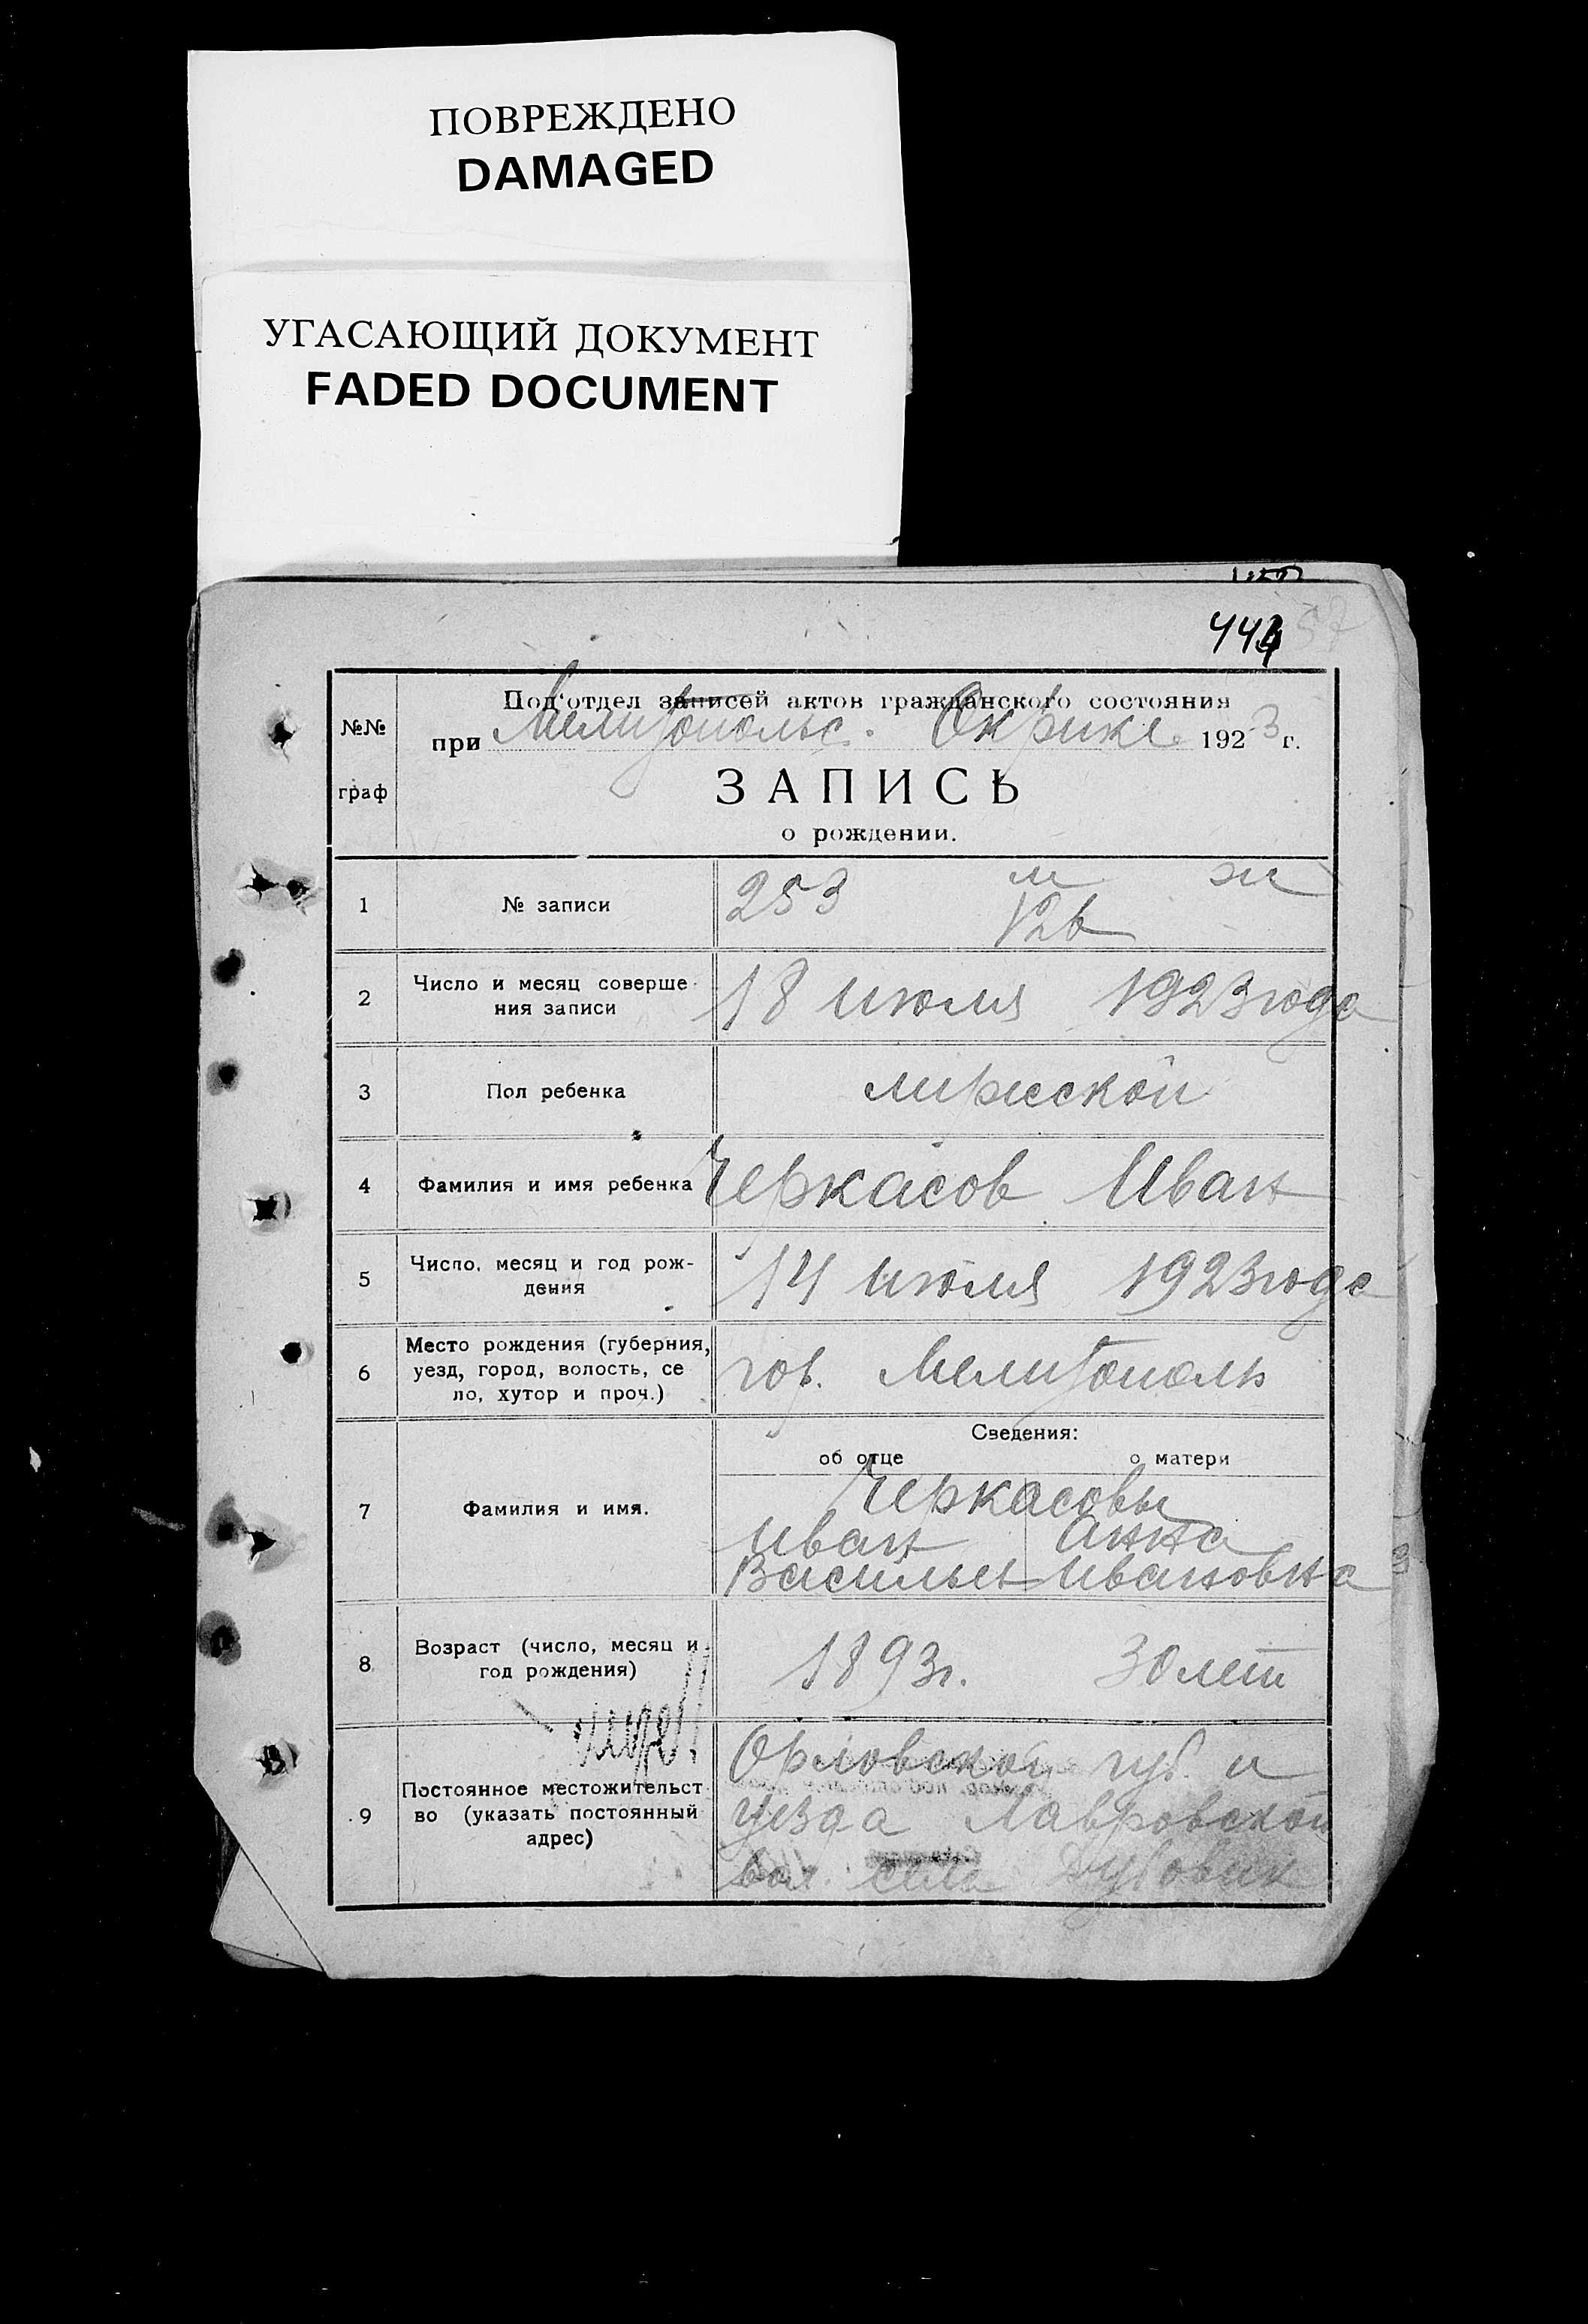 ПОВРЕЖДЕНО
DAMAGED
УГАСАЮЩИЙ ДОКУМЕНТ
FADED DOCUMENT
444
Под'отдел записей актов гражданского состояния
№№ граф
при Мелитопольс. Окрике 1923 г.
ЗАПИСЬ
о рождении.
1 № записи 253 м ж
12
2 Число и месяц соверше-
ния записи 18 июля 1923 года
3 Пол ребенка мужской
4 Фамилия и имя ребенка Черкасов Иван
5 Число, месяц и год рож-
дения 14 июля 1923 года
6 Место рождения (губерния,
уезд, город, волость, се
ло, хутор и проч.) гор. Мелитополь
Сведения:
об отце о матери
7 Фамилия и имя. Черкасовы
Иван Анна
Васильев Ивановна
8 Возраст (число, месяц и
год рождения) 1893 г. 30 лет
9 Постоянное местожительст
во (указать постоянный
адрес)
Орловской губ. и
уезда Лавровской
вол. села Дубовик